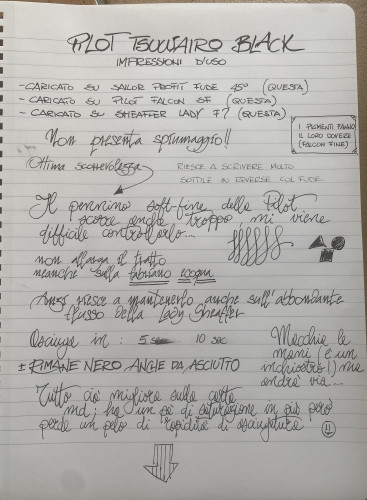 PILOT TSUWAIRO BLACK
IMPRESSIONI D'USO
- CARICATO SU SAILOR PROFIT FUDE 45° (QUESTA)
- CARICATO SU PILOT FALCON SF (QUESTA)
- CARICATO SU SHEAFFER LADY F? (QUESTA)
I PIGMENTI FANNO
IL LORO DOVERE
(FALCON FINE)
Non presenta spiumaggio!!
Ottima scorrevolezza
RIESCE A SCRIVERE MOLTO
SOTTILE IN REVERSE COL FUDE.
Il pennino soft-fine della Pilot
scorre anche troppo, mi viene
difficile controllarlo...
non allarga il tratto
neanche sulla fabriano ecoqua
Anzi riesce a mantenerlo anche sull'abbondante
flusso della Lady Sheaffer
Asciuga in: 5 sec 10 sec
± RIMANE NERO, ANCHE DA ASCIUTTO
Macchia le
mani (è un
inchiostro!) ma
andrà via...
Tutto ciò migliora sulla carta
md; ha un po' di saturazione in più però
perde un pelo di rapidità di asciugatura